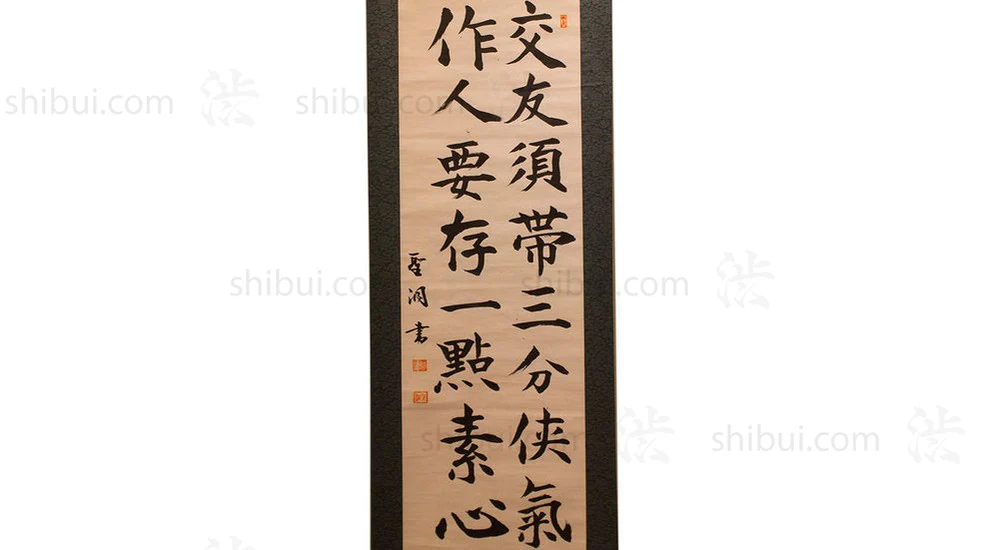 交友須帶三分侠氣
作人要存一點素心
聖洞書
shibui.com 渋
shibui.com
shibui.com
shibui.com 渋
shibui.com 渋
shibui.com 渋